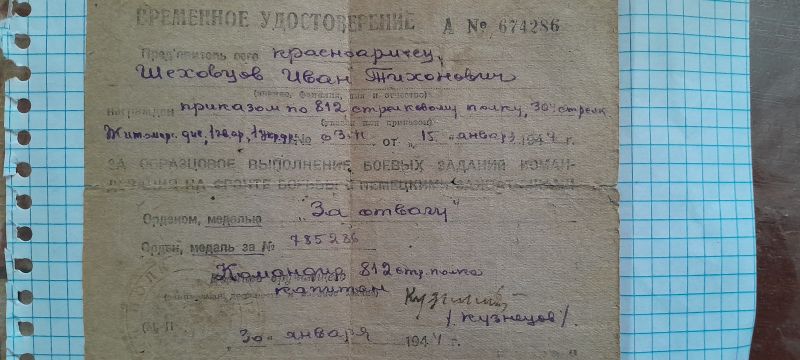 ВРЕМЕННОЕ УДОСТОВЕРЕНИЕ А № 674286
Пред'явитель сего красноармеец,
Шеховцов Иван Тихонович
(звание, фамилия, имя и отчество)
награжден приказом по 812 стрелковому полку, 304 стрелк.
Житомир. див, 1 гвар, 1 укр. № 03-н от „15„ января 1944 г.
ЗА ОБРАЗЦОВОЕ ВЫПОЛНЕНИЕ БОЕВЫХ ЗАДАНИЙ КОМАН-
ДОВАНИЯ НА ФРОНТЕ БОРЬБЫ С НЕМЕЦКИМИ ЗАХВАТЧИКАМИ
Орденом, медалью "За отвагу"
Орден, медаль за № 785286
Командир 812 стр. полка
капитан
/Кузнецов/.
М. П.
„30„ января 1944 г.